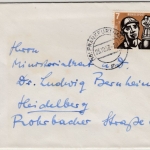 Herrn
Ministerialrat
Dr. Ludwig Bernheim
Heidelberg
Rohrbacher Straße